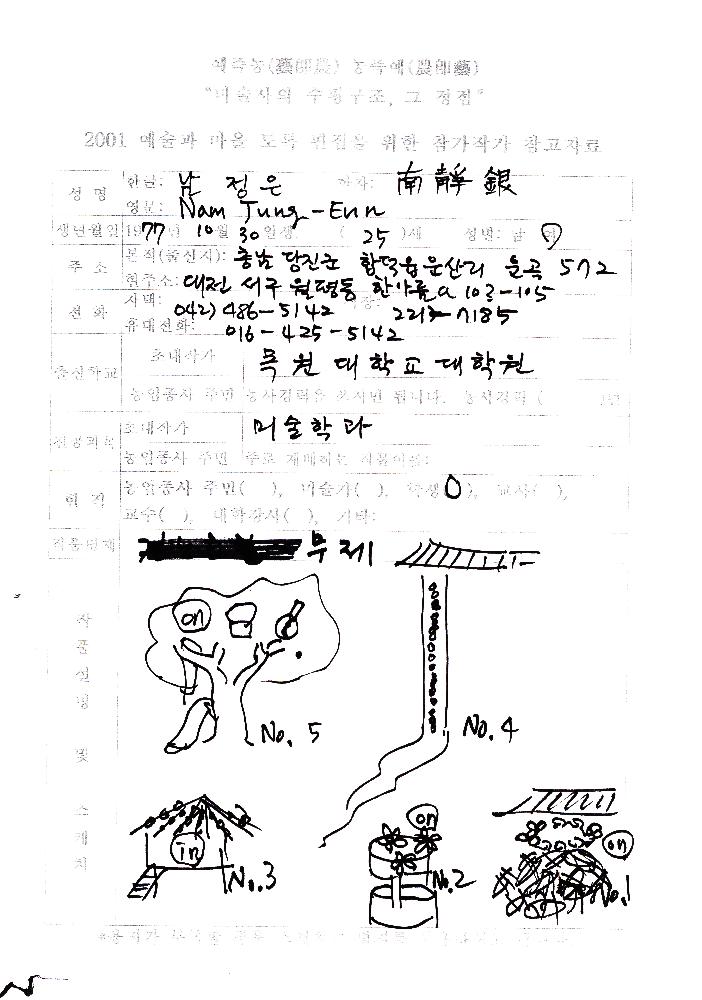 예즉농(藝卽農) 농즉예(農卽藝)
"미술사의 수평구조, 그 정점"
2001 예술과 마을 도록 편집을 위한 참가작가 참고자료
성 명 한글: 남 정 은 한자: 南 靜 銀
영문: Nam Jung-Eun
생년월일 1977년 10월 30일생 ( 25 )세 성별: 남 여
주 소 본적(출신지): 충남 당진군 합덕읍 운산리 둔곡 572
현주소: 대전 서구 월평동 한아름a 103-105
전 화 자택: 042) 486-5142
휴대전화: 016-425-5142
출신학교 초대작가 목원대학교대학원
농업종사 주민 농사경력을 쓰시면 됩니다. 농사경력 ( )년
전공과목 초대작가 미술학과
농업종사 주민 주로 재배하는 작물이름:
현 직 농업종사 주민( ), 미술가( ), 학생( O ), 교사( ),
교수( ), 대학강사( ), 기타:
작품명제 무제
작품설명 및 스케치
on
No. 5
No. 4
In
No.3
on
No.2
on
No.1